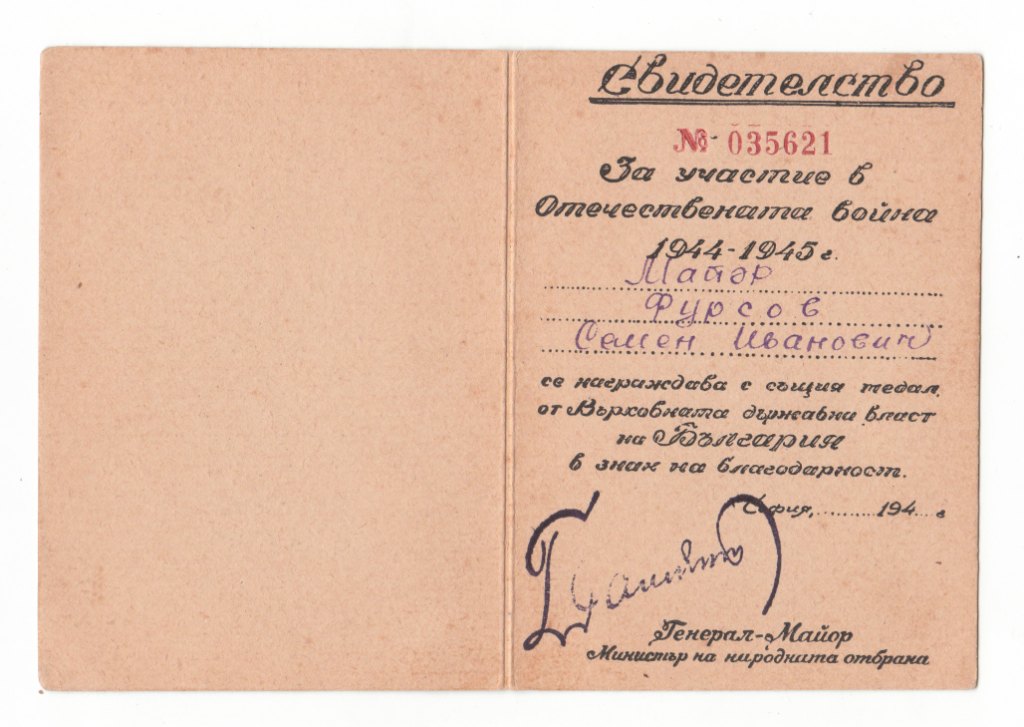 Свидетелство
№ 035621
За участие в
Отечествената война
1944-1945 г.
Майор
Фурсов
Семен Иванович
се награждава с същия медал
от Върховната държавна власт
на България
в знак на благодарност.
София, 194 г
Генерал-Майор
Министър на народната отбрана